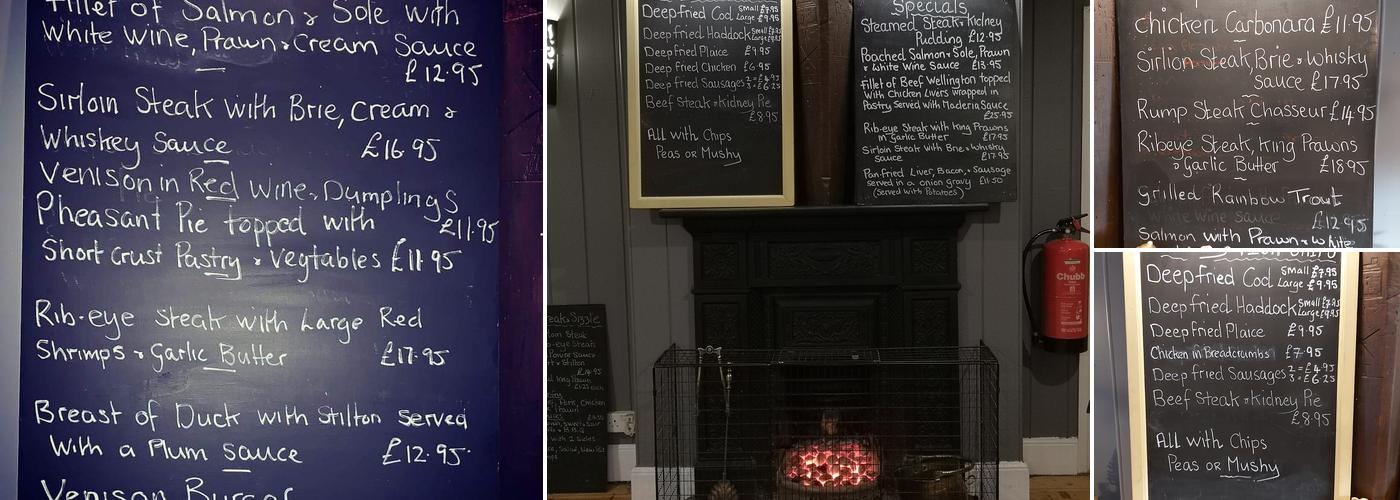 Fillet of Salmon & Sole with
White Wine, Prawn & Cream Sauce
£12.95
Sirloin Steak with Brie, Cream &
Whiskey Sauce £16.95
Venison in Red Wine, Dumplings
£11.95
Pheasant Pie topped with
Short Crust Pastry & Vegtables £11.95
Rib-eye Steak with Large Red
Shrimps & Garlic Butter £17.95
Breast of Duck with Stilton served
With a Plum sauce £12.95
Venison Burger
Deepfried Cod Small £7.95
Large £9.95
Deepfried Haddock Small £7.95
Large £9.95
Deepfried Plaice £9.95
Deepfried Chicken £6.95
Deepfried Sausages 2 = £4.95
3 = £6.25
Beef Steak & Kidney Pie
£8.95
All with Chips
Peas or Mushy
Specials
Steamed Steak & Kidney
Pudding £12.95
Poached Salmon & Sole, Prawn
& White Wine Sauce £13.95
Fillet of Beef Wellington topped
With Chicken Livers wrapped in
Pastry served with Maderia Sauce
£25.95
Rib-eye Steak with King Prawns
in Garlic Butter £17.95
Sirloin Steak with Brie & Whisky
Sauce £17.95
Pan-fried Liver, Bacon, & Sausage
served in a onion gravy £11.50
(Served with Potatoes)
Chubb
Chicken Carbonara £11.95
Sirlion Steak, Brie & Whisky
Sauce £17.95
Rump Steak Chasseur £14.95
Ribeye Steak, King Prawns
& Garlic Butter £18.95
Grilled Rainbow Trout
White wine sauce £12.95
Salmon with Prawn & White
Deepfried Cod Small £7.95
Large £9.95
Deepfried Haddock Small £7.95
Large £9.95
Deepfried Plaice £9.95
Chicken in Breadcrumbs £7.95
Deepfried Sausages 2 = £4.95
3 = £6.25
Beef Steak & Kidney Pie
£8.95
All with Chips
Peas or Mushy